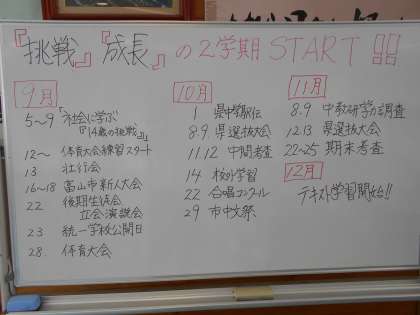 『挑戦』『成長』の2学期START!!
9月
5~9「社会に学ぶ
『14歳の挑戦』」
12~ 体育大会練習スタート
13 壮行会
16~18 富山市新人大会
22 後期生徒会
立会演説会
23 統一学校公開日
28. 体育大会
10月
1 県中学駅伝
8.9 県選抜大会
11.12 中間考査
14 校外学習
22 合唱コンクール
29 市中文祭
11月
8.9 中教研学力調査
12.13 県選抜大会
22~25 期末考査
12月
テキスト学習開始!!